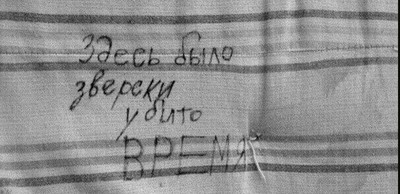 Здесь было
зверски
убито
ВРЕМЯ